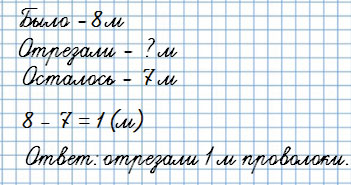 Было – 8 м
Отрезали – ? м
Осталось – 7 м
8 – 7 = 1 (м)
Ответ: отрезали 1 м проволоки.